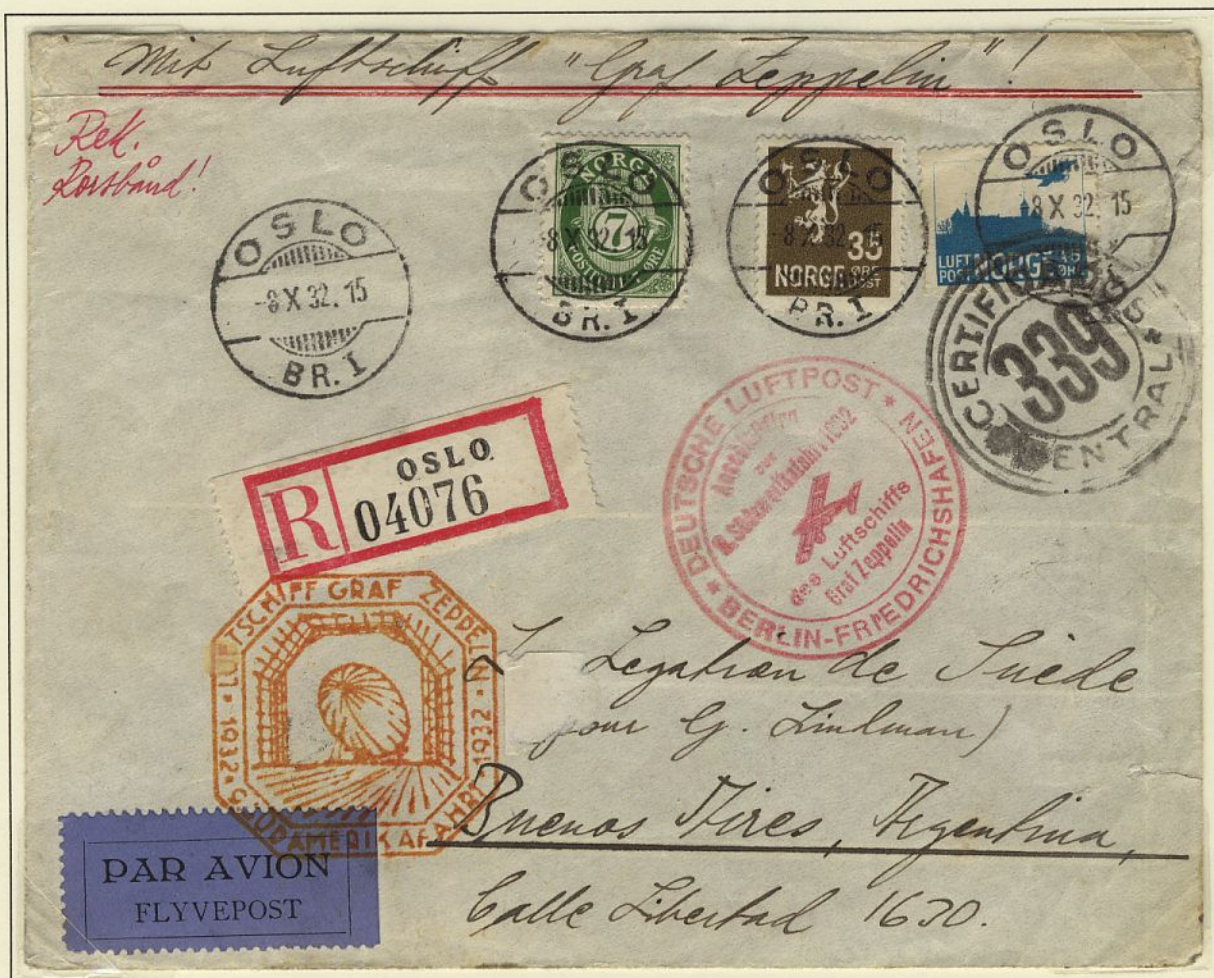 Mit Luftschiff "Graf Zeppelin"!
Rek.
Korsbånd!
OSLO
-8 X 32. 15
BR. I
NORGE
7
POSTFRIM. ØRE
OSLO
-8 X 32. 15
BR. I
35
NORGE ØRE
POST
OSLO
-8 X 32. 15
BR. I
LUFT POST NORGE 45 ØRE
OSLO
-8 X 32. 15
CERTIFICADOS
339
CENTRAL
R
OSLO
04076
* DEUTSCHE LUFTPOST *
Anschlußflug
zur
Südamerikafahrt 1932
des Luftschiffs
Graf Zeppelin
BERLIN-FRIEDRICHSHAFEN
LUFTSCHIFF GRAF ZEPPELIN
1932 SÜDAMERIKAFAHRT 1932
Legation de Suède
(pour G. Lindman)
Buenos Aires, Argentina,
Calle Libertad 1630.
PAR AVION
FLYVEPOST